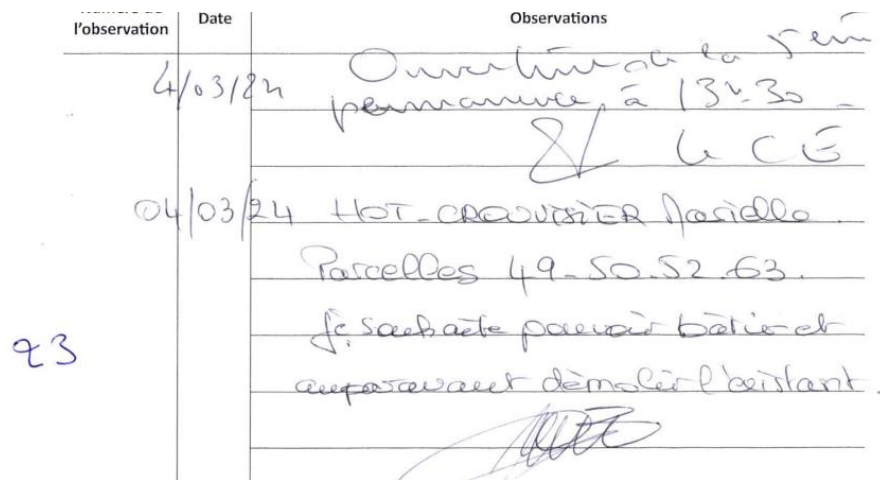 Numéro de
l'observation
Date
Observations
4/03/24
Ouverture de la 5 eme
permanence à 13h30
Le CE
04/03/24 HOT-CROUVISIER
Parcelles 49-50.52.63.
je souhaite pouvoir bâtir et
23
auparavant démolir l'existant.